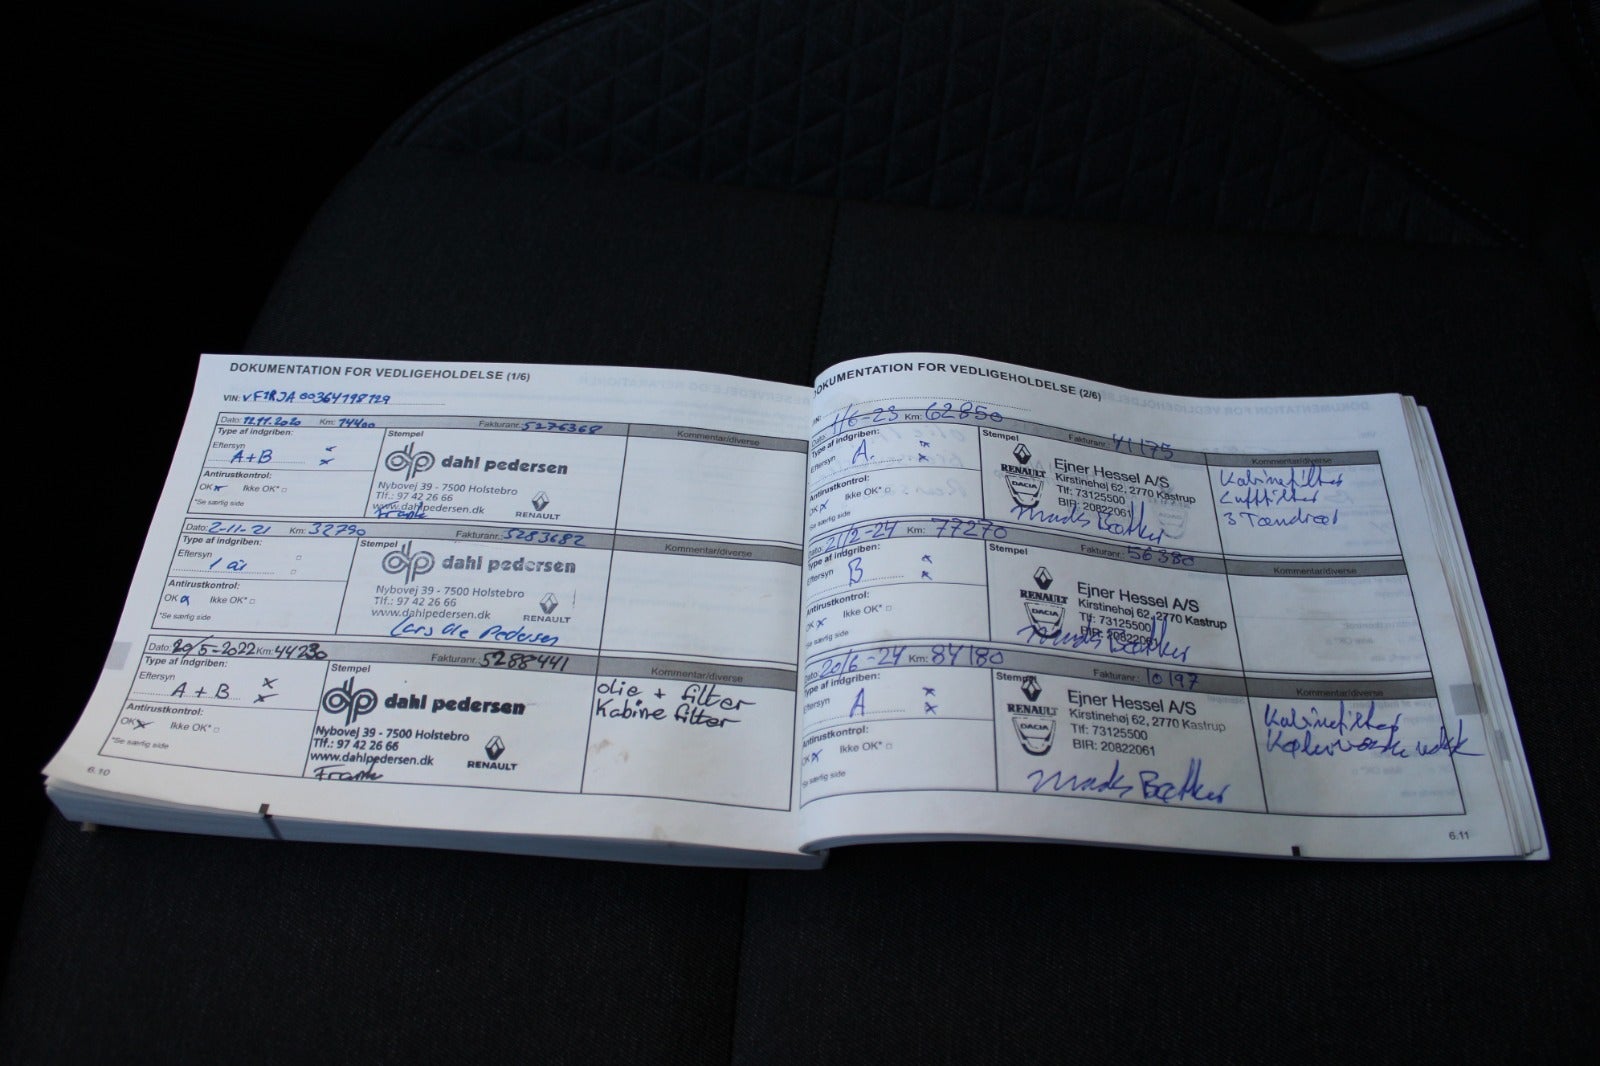 DOKUMENTATION FOR VEDLIGEHOLDELSE (1/6)
VIN: VF1RJA00364198729
Dato: 12.11.2020 Km: 14400 Fakturanr.: 5276368
Type af indgriben: Stempel Kommentar/diverse
Eftersyn
A+B
dahl pedersen
Antirustkontrol:
Nybovej 39 - 7500 Holstebro
OK Ikke OK*
Tlf.: 97 42 26 66
www.dahlpedersen.dk
*Se særlig side
Frank
RENAULT
Dato: 2-11-21 Km: 32790 Fakturanr.: 5283682
Type af indgriben: Stempel Kommentar/diverse
Eftersyn
1 år
dahl pedersen
Antirustkontrol:
Nybovej 39 - 7500 Holstebro
OK Ikke OK*
Tlf.: 97 42 26 66
www.dahlpedersen.dk
*Se særlig side
RENAULT
Lars Ole Pedersen
Dato: 20/5-2022 Km: 44230 Fakturanr.: 5288441
Type af indgriben: Stempel Kommentar/diverse
Eftersyn
A + B
dahl pedersen
olie + filter
Kabine filter
Antirustkontrol:
Nybovej 39 - 7500 Holstebro
OK Ikke OK*
Tlf.: 97 42 26 66
www.dahlpedersen.dk
*Se særlig side
RENAULT
Frank
6.10
DOKUMENTATION FOR VEDLIGEHOLDELSE (2/6)
VIN:
Dato: 1/6-23 Km: 62850 Fakturanr.: 41175
Type af indgriben: Stempel Kommentar/diverse
Eftersyn A.
RENAULT
DACIA
Ejner Hessel A/S
Kirstinehøj 62, 2770 Kastrup
Tlf: 73125500
BIR: 20822061
Kabinefilter
Luftfilter
3 Tændrør
Antirustkontrol:
OK Ikke OK*
Se særlig side
Mads Bakker
Dato: 21/2-24 Km: 77270 Fakturanr.: 56380
Type af indgriben: Stempel Kommentar/diverse
Eftersyn B
RENAULT
DACIA
Ejner Hessel A/S
Kirstinehøj 62, 2770 Kastrup
Tlf: 73125500
BIR: 20822061
Antirustkontrol:
OK Ikke OK*
Se særlig side
Mads Bakker
Dato: 20/6-24 Km: 84180 Fakturanr.: 10197
Type af indgriben: Stempel Kommentar/diverse
Eftersyn A
RENAULT
DACIA
Ejner Hessel A/S
Kirstinehøj 62, 2770 Kastrup
Tlf: 73125500
BIR: 20822061
Kabinefilter
Antirustkontrol:
OK Ikke OK*
Se særlig side
Mads Bakker
6.11